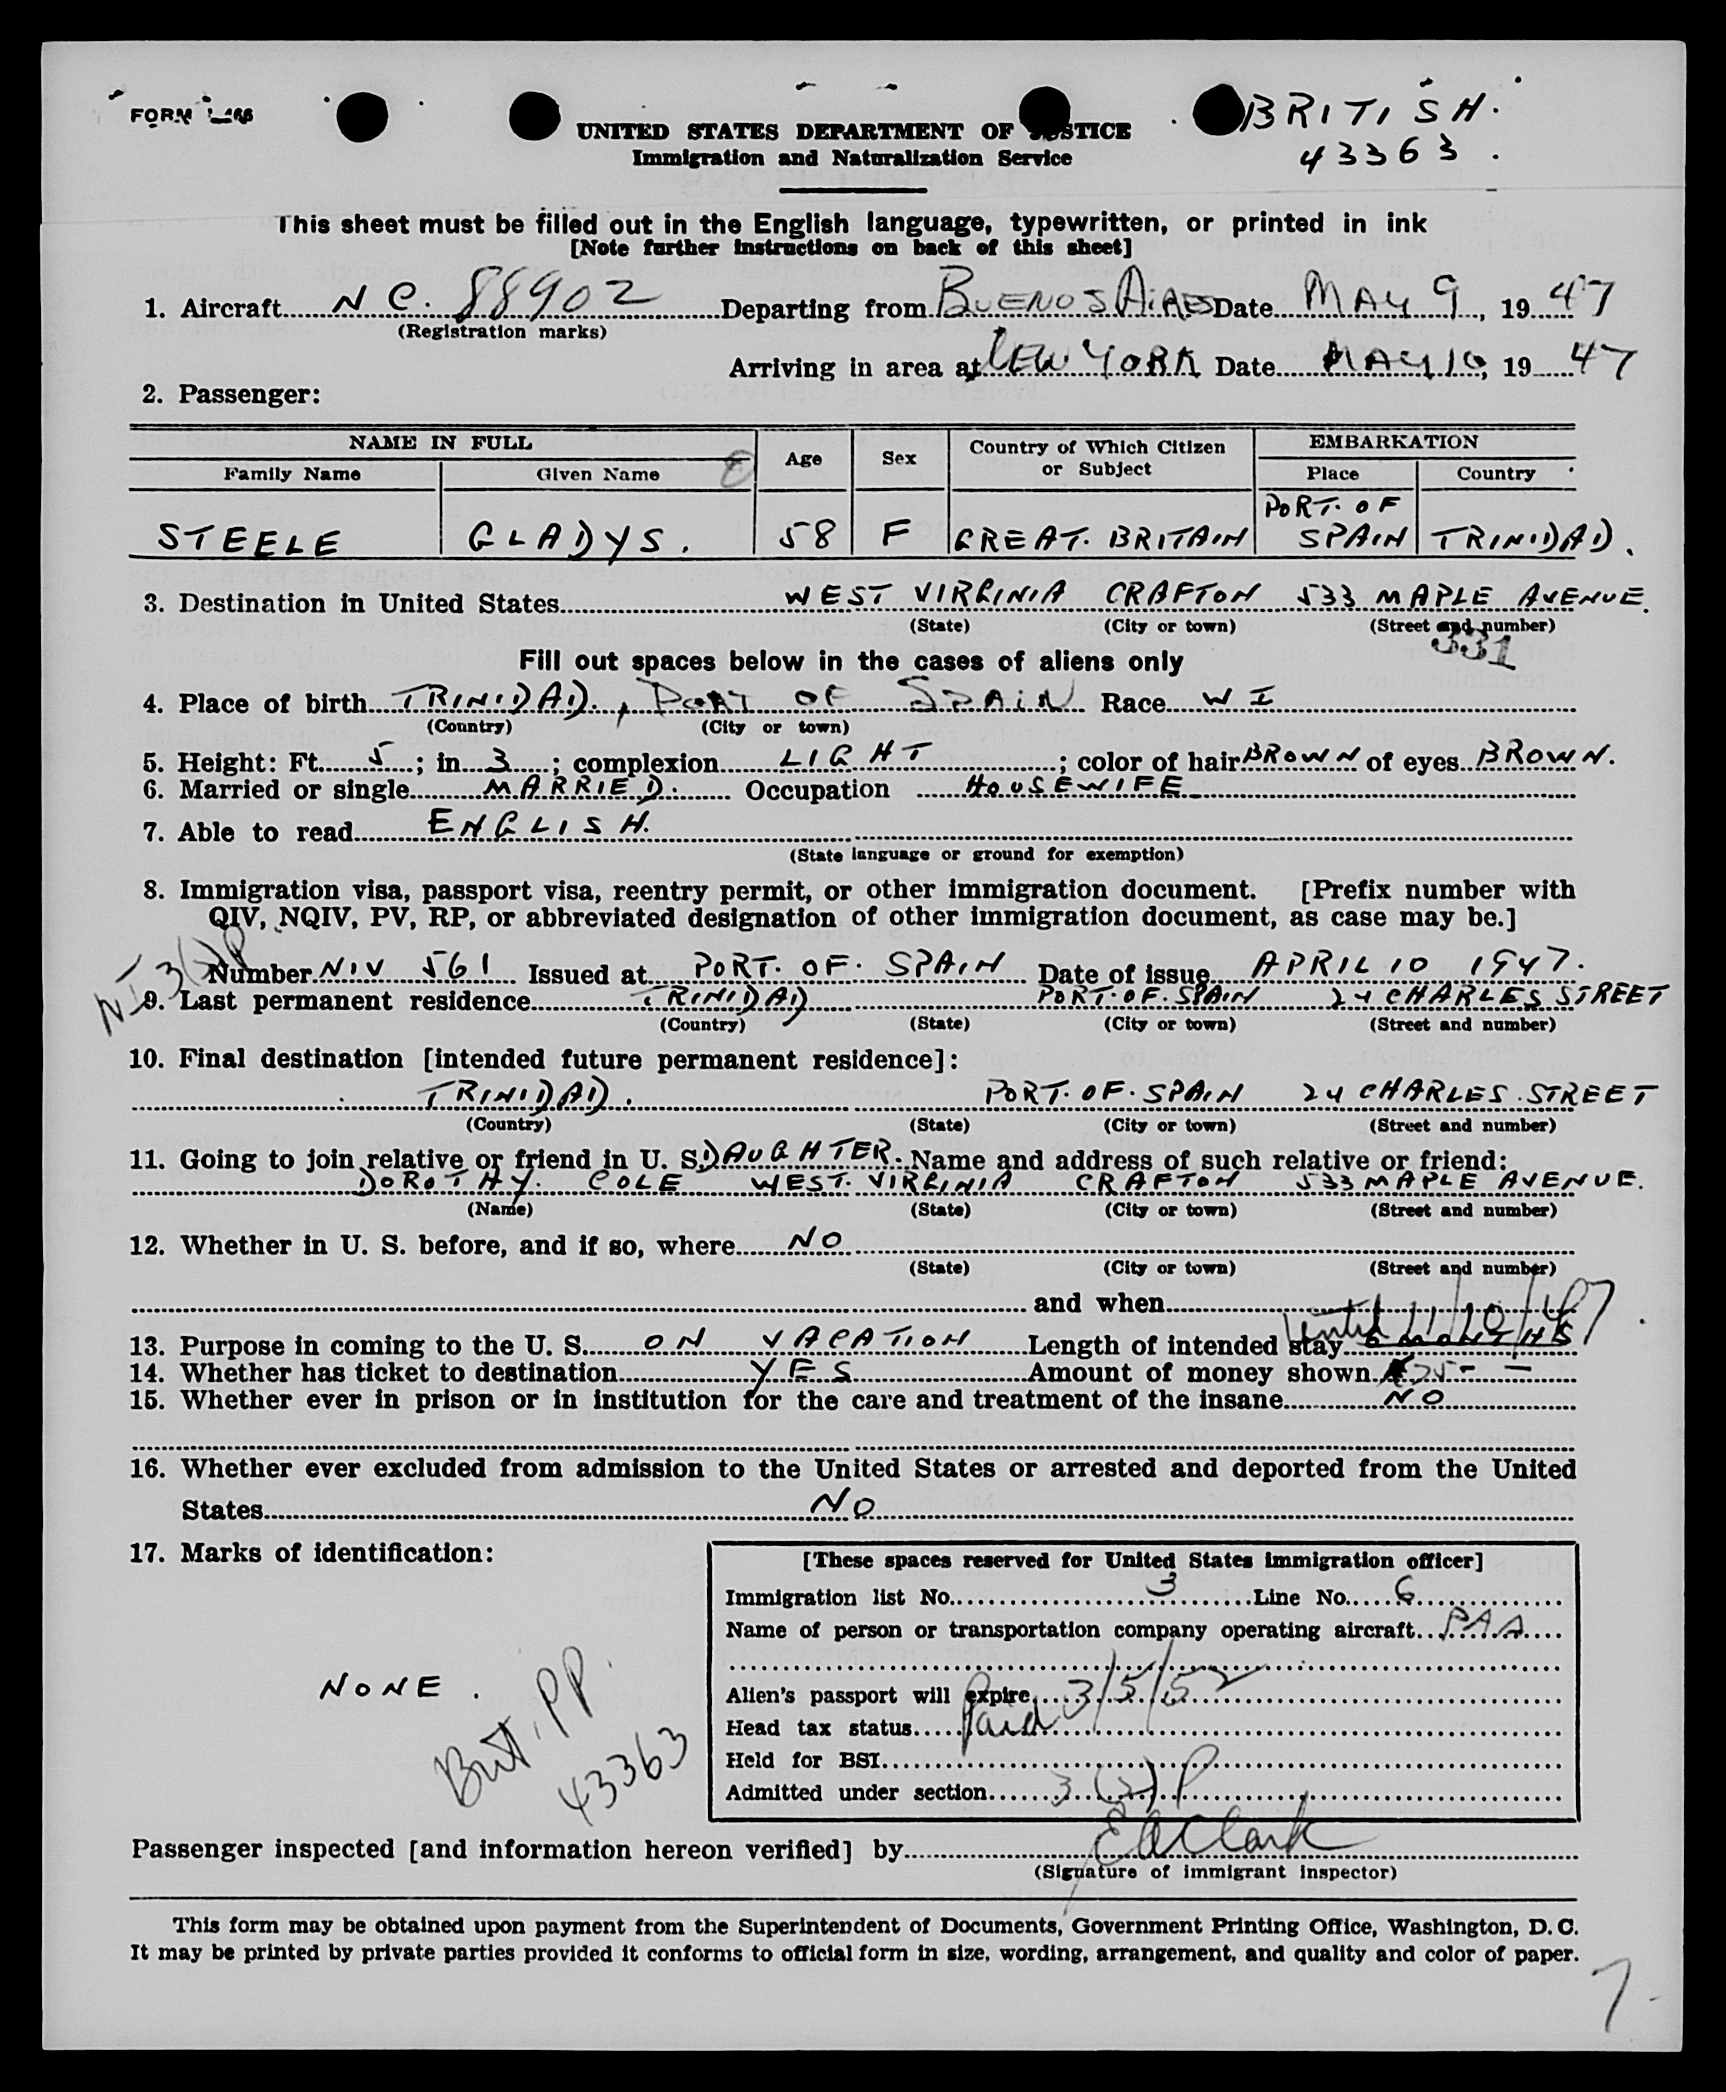 FORM I-466
BRITISH.
43363.
UNITED STATES DEPARTMENT OF JUSTICE
Immigration and Naturalization Service
This sheet must be filled out in the English language, typewritten, or printed in ink
[Note further instructions on back of this sheet]
1. Aircraft NC. 88902 Departing from BUENOS AIRES Date MAY 9, 1947
(Registration marks)
Arriving in area at NEW YORK Date MAY 10, 1947
2. Passenger:
NAME IN FULL Age Sex Country of Which Citizen or Subject EMBARKATION
Family Name Given Name Place Country
STEELE GLADYS. 58 F GREAT. BRITAIN PORT. OF SPAIN TRINIDAD.
3. Destination in United States WEST VIRGINIA CRAFTON 533 MAPLE AVENUE.
(State) (City or town) (Street and number)
331
Fill out spaces below in the cases of aliens only
4. Place of birth TRINIDAD., PORT OF SPAIN Race W I
(Country) (City or town)
5. Height: Ft. 5; in. 3; complexion LIGHT; color of hair BROWN of eyes BROWN.
6. Married or single MARRIED. Occupation HOUSEWIFE
7. Able to read ENGLISH.
(State language or ground for exemption)
8. Immigration visa, passport visa, reentry permit, or other immigration document. [Prefix number with
QIV, NQIV, PV, RP, or abbreviated designation of other immigration document, as case may be.]
NI 3(2)P
Number NIV 561 Issued at PORT. OF. SPAIN Date of issue APRIL 10 1947.
9. Last permanent residence TRINIDAD PORT. OF. SPAIN 24 CHARLES STREET
(Country) (State) (City or town) (Street and number)
10. Final destination [intended future permanent residence]:
TRINIDAD. PORT. OF. SPAIN 24 CHARLES. STREET
(Country) (State) (City or town) (Street and number)
11. Going to join relative or friend in U. S. DAUGHTER. Name and address of such relative or friend:
DOROTHY. COLE WEST. VIRGINIA CRAFTON 533 MAPLE AVENUE.
(Name) (State) (City or town) (Street and number)
12. Whether in U. S. before, and if so, where NO
(State) (City or town) (Street and number)
and when
until 11/10/47
13. Purpose in coming to the U. S. ON VACATION Length of intended stay 6 MONTHS
14. Whether has ticket to destination YES Amount of money shown 25 - -
15. Whether ever in prison or in institution for the care and treatment of the insane NO
16. Whether ever excluded from admission to the United States or arrested and deported from the United
States NO
17. Marks of identification:
NONE.
Brit. PP.
43363
[These spaces reserved for United States immigration officer]
Immigration list No. 3 Line No. 6
Name of person or transportation company operating aircraft PAA
Alien's passport will expire 3/5/52
Head tax status Paid
Held for BSI
Admitted under section 3(2)P
Passenger inspected [and information hereon verified] by EAClark
(Signature of immigrant inspector)
This form may be obtained upon payment from the Superintendent of Documents, Government Printing Office, Washington, D. C.
It may be printed by private parties provided it conforms to official form in size, wording, arrangement, and quality and color of paper.
7-